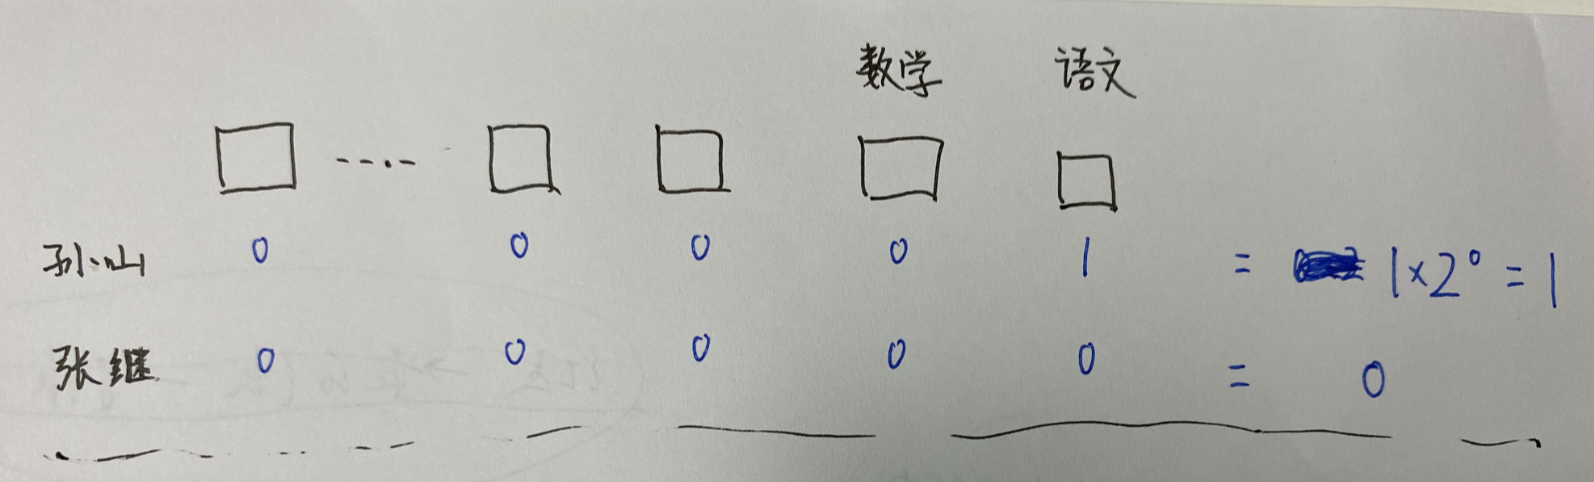 数学 语文
孙山 0 0 0 0 1 = 1×2⁰ = 1
张继 0 0 0 0 0 = 0